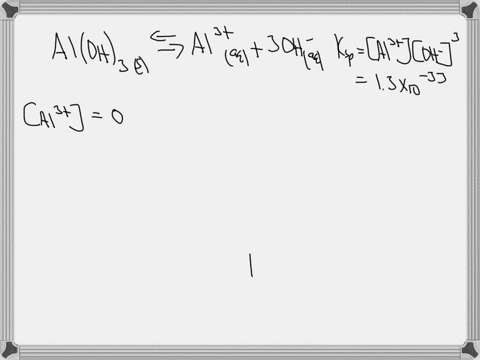 Al(OH)₃(s) ⇌ Al³⁺(aq) + 3OH⁻(aq) Ksp = [Al³⁺][OH⁻]³
= 1.3×10⁻³³
[Al³⁺] = 0
|